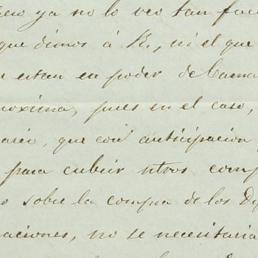 ya no lo veo tan fac
que dimos á R., ni el que
estan en poder de Cama
proxima, pues en el caso,
que con anticipacion
para cubrir ntros. comp
sobre la compra de los
aciones, no se necesitaria